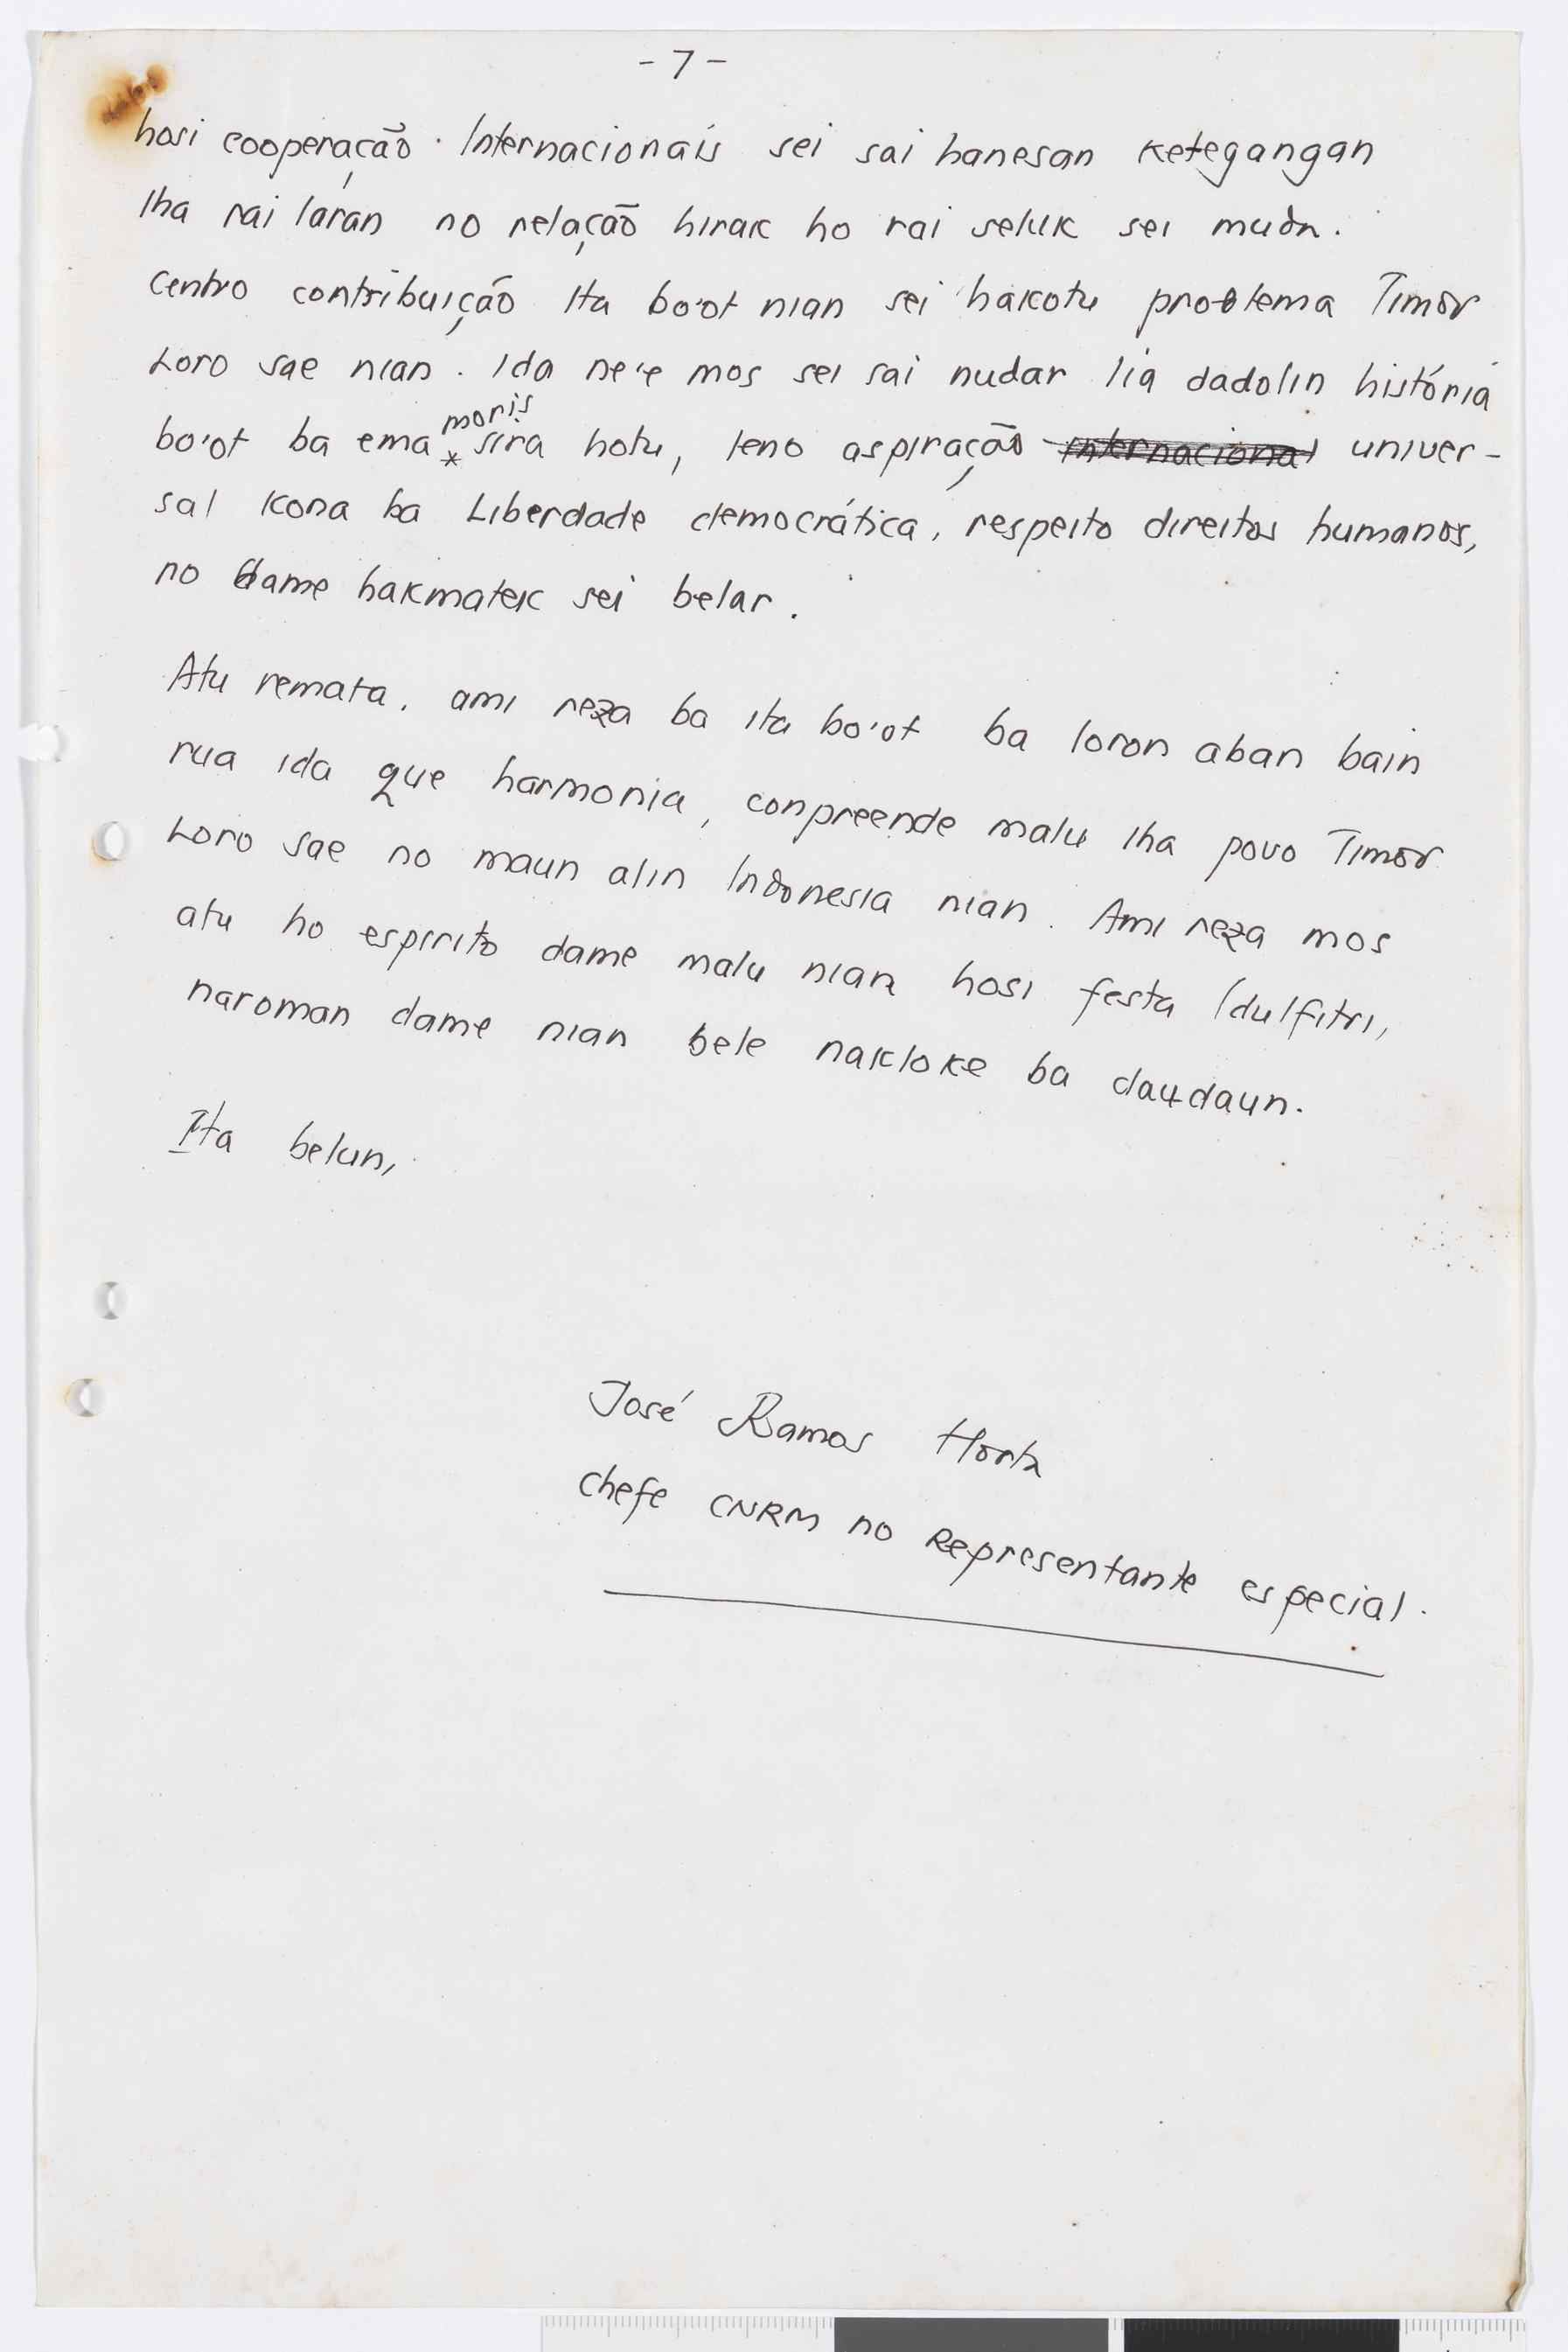 - 7 -
hosi cooperação Internacionais sei sai hanesan Ketegangan
Iha rai laran no relação hirak ho rai seluk sei muda.
Centro contribuição Ita bo'ot nian sei hakotu problema Timor
Loro sae nian. Ida ne'e mos sei sai nudar lia dadolin história
bo'ot ba ema * moris sira hotu, leno aspiração internacional univer-
sal Kona ba Liberdade democrática, respeito direitos humanos,
no dame hakmatek sei belar.
Atu remata, ami reza ba ita bo'ot ba loron aban bain
rua ida que harmonia, conpreende malu Iha povo Timor
Loro sae no maun alin Indonesia nian. Ami reza mos
atu ho espirito dame malu nian hosi festa Idulfitri,
naroman dame nian bele nakloke ba daudaun.
Ita belun,
José Ramos Horta
Chefe CNRM no Representante especial.